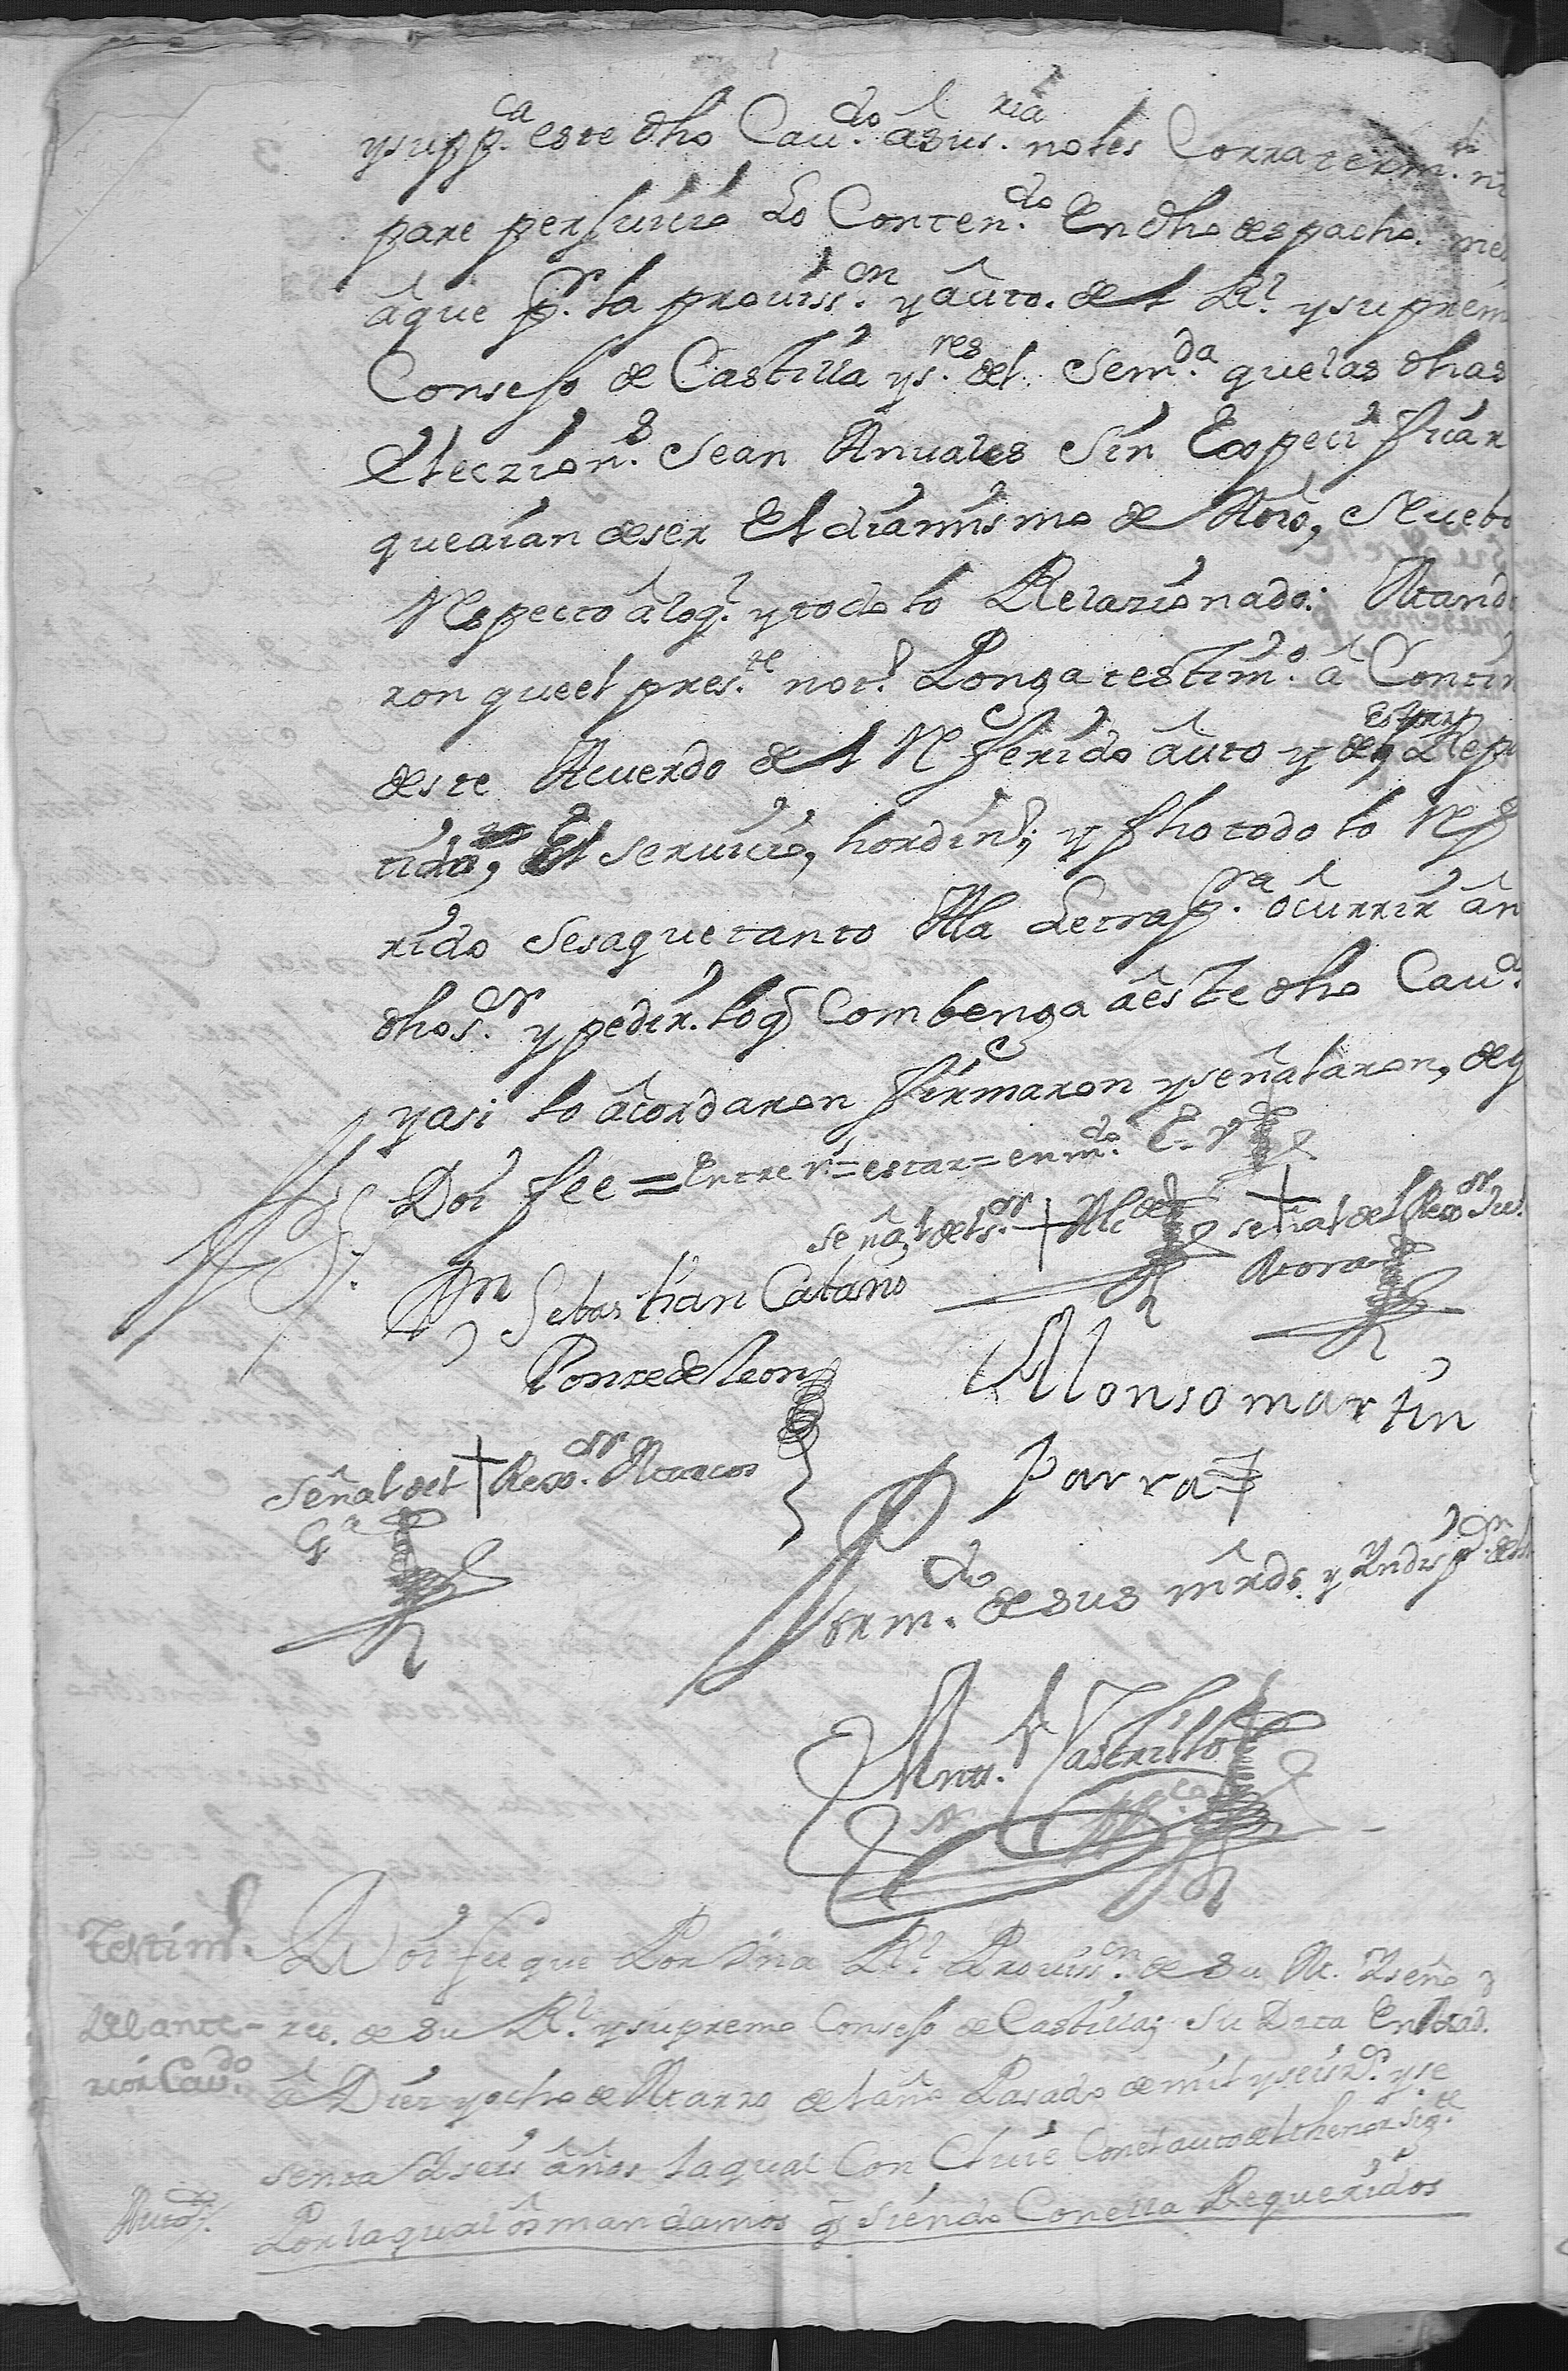 y supp.ca este dho Cau.do a sus.ria no les Corra term.no ni
pare perjuicio Lo Conten.do En dho despacho.
a que p.r la prouiss.on y auto. del Rl. y suprem
Consejo de Castilla y s.res del Sem.da que las dhas
Eleczion.s Sean Anuales Sin Expecificar
que aian de ser El dia mismo de Año, Nuebo
Respecto a loq.e y todo lo Relazionado: Mand
ron que el pres.te not.o Ponga testim.o a Contin
deste Acuerdo del Referido auto y de estar Repar
tido, El seruicio, hordin.o; y fho todo lo Refe
rido se saque tanto Ala Letra p.ra ocurrir an
dhos.r y pedir. loq Combenga a este dho Cau.do
y asi lo acordaron firmaron y señalaron, de q
Doi fee = Entre r.s = estar = enm.do E = v.e
señal del s.or + Alc.de señal del + Rexo.or Ju.
Mora
Jun Sebastian Cataño
Ponze de leon
Alonso martin
Parra
Señal del + Rexo.or Marcos
G.a
Por m.do de sus mrds. y Yndisp.on
Anto. Castrillo
Testim.o
del ante-
rior Cau.do
Doi fee que Por Vna Rl. Prouiss.on de Su M. y señ
res. de Su Rl. y supremo Consejo de Castilla; Su Data En Mad.
a Diez y ocho de Marzo del año Pasado de mil y seisz.s y se
senta y seis años la qual Concluie Con el auto del thenor sig.te
Auto.
Por la qual os mandamos q siendo Con ella Requeridos